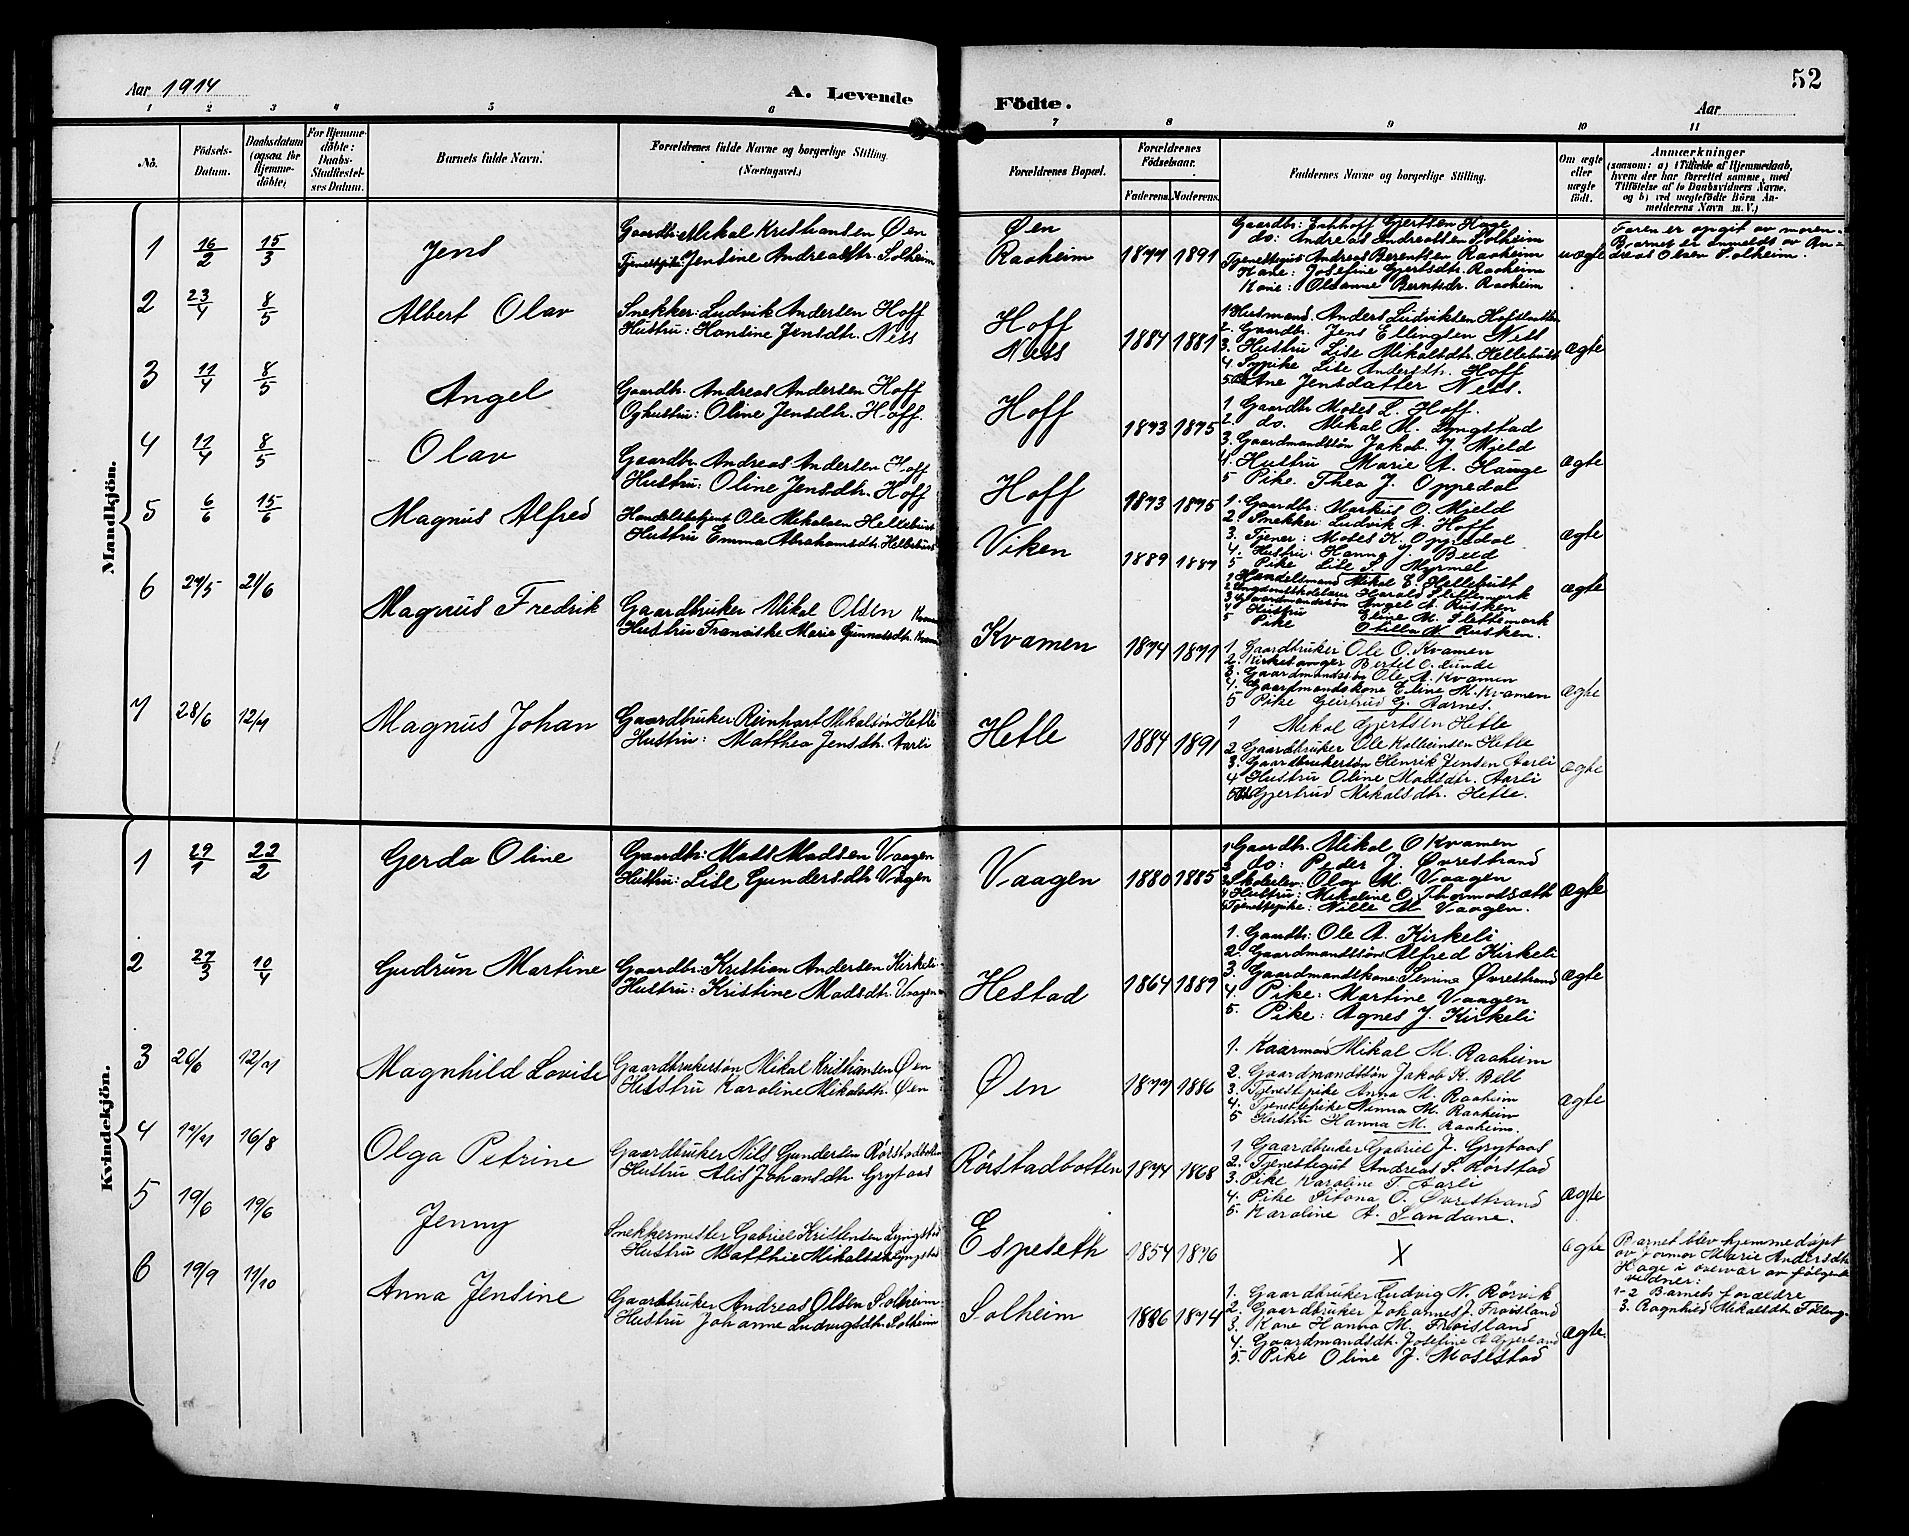 Aar 1914
A. Levende
Födte.
52
Aar
1 2 3 4 5 6 7 8 9 10 11
No.
Födsels-Datum.
Daabsdatum (ogsaa for Hjemme-döbte)
For Hjemme-döbte: Daabs-Stadfestel-ses Datum.
Barnets fulde Navn.
Forældrenes fulde Navne og borgerlige Stilling. (Næringsvei.)
Forældrenes Bopæl.
Forældrenes Födselsaar.
Faderens. Moderens.
Faddernes Navne og borgerlige Stilling.
Om ægte eller uægte födt.
Anmærkninger
(saasom: a) i Tilfælde af Hjemmedaab, hvem der har forrettet samme, med Tilföielse af to Daabsvidners Navne. og b) ved uægtefödte Börn An-melderens Navn m. V.)
Mandkjön.
1 16/2 15/3 Jens
Gaardbr: Mikal Kristiansen Øen
Tjenestepike Jensine Andreasdtr. Solheim
Øen
Raaheim 1877 1891
Gjertsen Hage
do: Andreas Andreassen Solheim
Tjenestegut Andreas Berentsen Raaheim
Kone: Josefine Gjertsdtr. Raaheim
Kone: Olianne Berntsdr. Raaheim
uægte
Faren er opgit av moren-
Barnet er anmeldt av An-
dreas Olsen Solheim.
2 23/4 8/5 Albert Olav
Snekker: Ludvik Andersen Hoff
Hustru: Hansine Jensdtr. Ness
Hoff
Ness 1884 1881
1 Husmand Anders Ludviksen
2. Gaardbr. Jens Ellingsen Ness
3. Hustru Lise Mikalsdtr. Hellebust
4. Sypike Lise Andersdtr. Hoff
5. Ane Jensdatter Ness.
ægte
3 11/4 8/5 Angel
Gaardbr. Andreas Andersen Hoff
Og hustru: Oline Jensdtr. Hoff.
Hoff 1873 1875
1. Gaardbr Moses L. Hoff.
2. do. Mikal M. Lyngstad
3. Gaardmandssøn Jakob J. Mjeld
4. Hustru Marie A. Hauge
5 Pike. Thea J. Oppedal
ægte
4 11/4 8/5 Olav
Gaardbr. Andreas Andersen Hoff
Hustru: Oline Jensdtr. Hoff
Hoff 1873 1875
1. Gaardbr: Markus O. Mjeld
2. Snekker: Ludvik A. Hoff
3. Tjener: Moses K. Oppedal
4. Hustru: Hanna J. Bell
5 Pike Lise S. Myrmel
ægte
5 6/6 15/6 Magnus Alfred
Handelsbetjent Ole Mikalsen Hellebust
Hustru Emma Abrahamsdtr. Hellebust
Viken 1889 1887
1 Handelsmand Mikal E. Hellebust
2 Harald Slettemark
3 Gaardmandssøn Angel A. Rusken
4 Hustru Eline M. Slettemark
5 Pike Otilla N. Rusken.
ægte
6 27/5 21/6 Magnus Fredrik
Gaardbruker Mikal Olsen
Hustru Franciske Marie Gunnarsdtr.
Kvamen 1874 1871
1. Gaardbruker Ole O. Kvamen
2. Kirkesanger Bertel O. Lunde
3. Gaardmandssøn Ole A. Kvamen
4. Gaardmandskone Eline M. Kvamen
5 Pike Geirtrud G. Aarnes.
ægte
7 28/6 12/7 Magnus Johan
Gaardbruker Reinhart Mikalsøn Hetle
Hustru: Matthea Jensdtr. Aarli
Hetle 1884 1891
1 Mikal Gjertsen Hetle
2 Gaardbruker Ole Kolbeinsen Hetle
3. Gaardbrukersøn Henrik Jensen Aarli
4 Hustru Oline Madsdtr. Aarli
5 Gjertrud Mikalsdtr. Hetle.
ægte
Kvindekjön.
1 29/1 22/2 Gerda Oline
Gaardbr: Mads Madsen Vaagen
Hustru: Lise Gundersdtr Vågen
Vaagen 1880 1885
1 Gaardbr. Mikal O Kvamen
2 do: Peder J. Øvrestrand
3 Skoleelev: Olav M. Vaagen
4 Hustru: Mikaline O. Thormodsæth
5 Tjenestepike: Nille M. Vaagen.
ægte
2 27/3 10/4 Gudrun Martine
Gaardbr: Kristian Andersen Kirkeli
Hustru: Kristine Madsdtr. Vaagen
Hestad 1864 1889
1. Gaardbr: Ole A. Kirkeli
2. Gaardmandssøn Alfred Kirkeli
3. Gaardmandskone: Severine Øvrestrand
4. Pike: Martine Vaagen
5. Pike: Agnes J. Kirkeli
ægte
3 26/6 12/7 Magnhild Lovise
Gaardbrukersøn Mikal Kristiansen Øen
Hustru Karoline Mikalsdtr. Øen
Øen 1877 1886
1. Kaarmand Mikal M. Raaheim
2. Gaardmandssøn Jakob K. Bell
3. Tjenestepike Anna M. Raaheim
4. Tjenestepike Ninna M. Raaheim
5 Hustru Hanna M. Raaheim.
ægte
4 17/7 16/8 Olga Petrine
Gaardbruker Nils Gundersen Rørstadbotten
Hustru Alis Johansdtr. Grytaas
Rørstadbotten 1877 1868
1 Gaardbruker Gabriel J. Grytaas
2. Tjenestegut Andreas S. Rørstad
3. Pike Karoline T. Aarli
4. Pike O. Øvrestrand
5. Karoline A. Sandane.
ægte
5 19/6 19/6 Jenny
Snekkermester Gabriel Kristensen Lyngstad
Hustru Matthie Mikalsdtr Lyngstad
Espeseth 1854 1876
X
ægte
Barnet blev hjemmedøpt
av Jormor Marie Andersdtr.
Hage i overvær av følgende
vidner:
1-2 Barnets forældre
3. Ragnhild Mikalsdtr.
6 19/9 11/10 Anna Jensine
Gaardbruker Andreas Olsen Solheim.
Hustru Johanne Ludvigsdtr. Solheim
Solheim 1886 1874
1. Gaardbruker Ludvig N. Rørvik
2. Gaardbruker Johannes J. Frøisland
3 Kone Hanna M. Frøisland
4 Gaardmandsdtr. Josefine
5. Pike Oline J. Mosestad
ægte